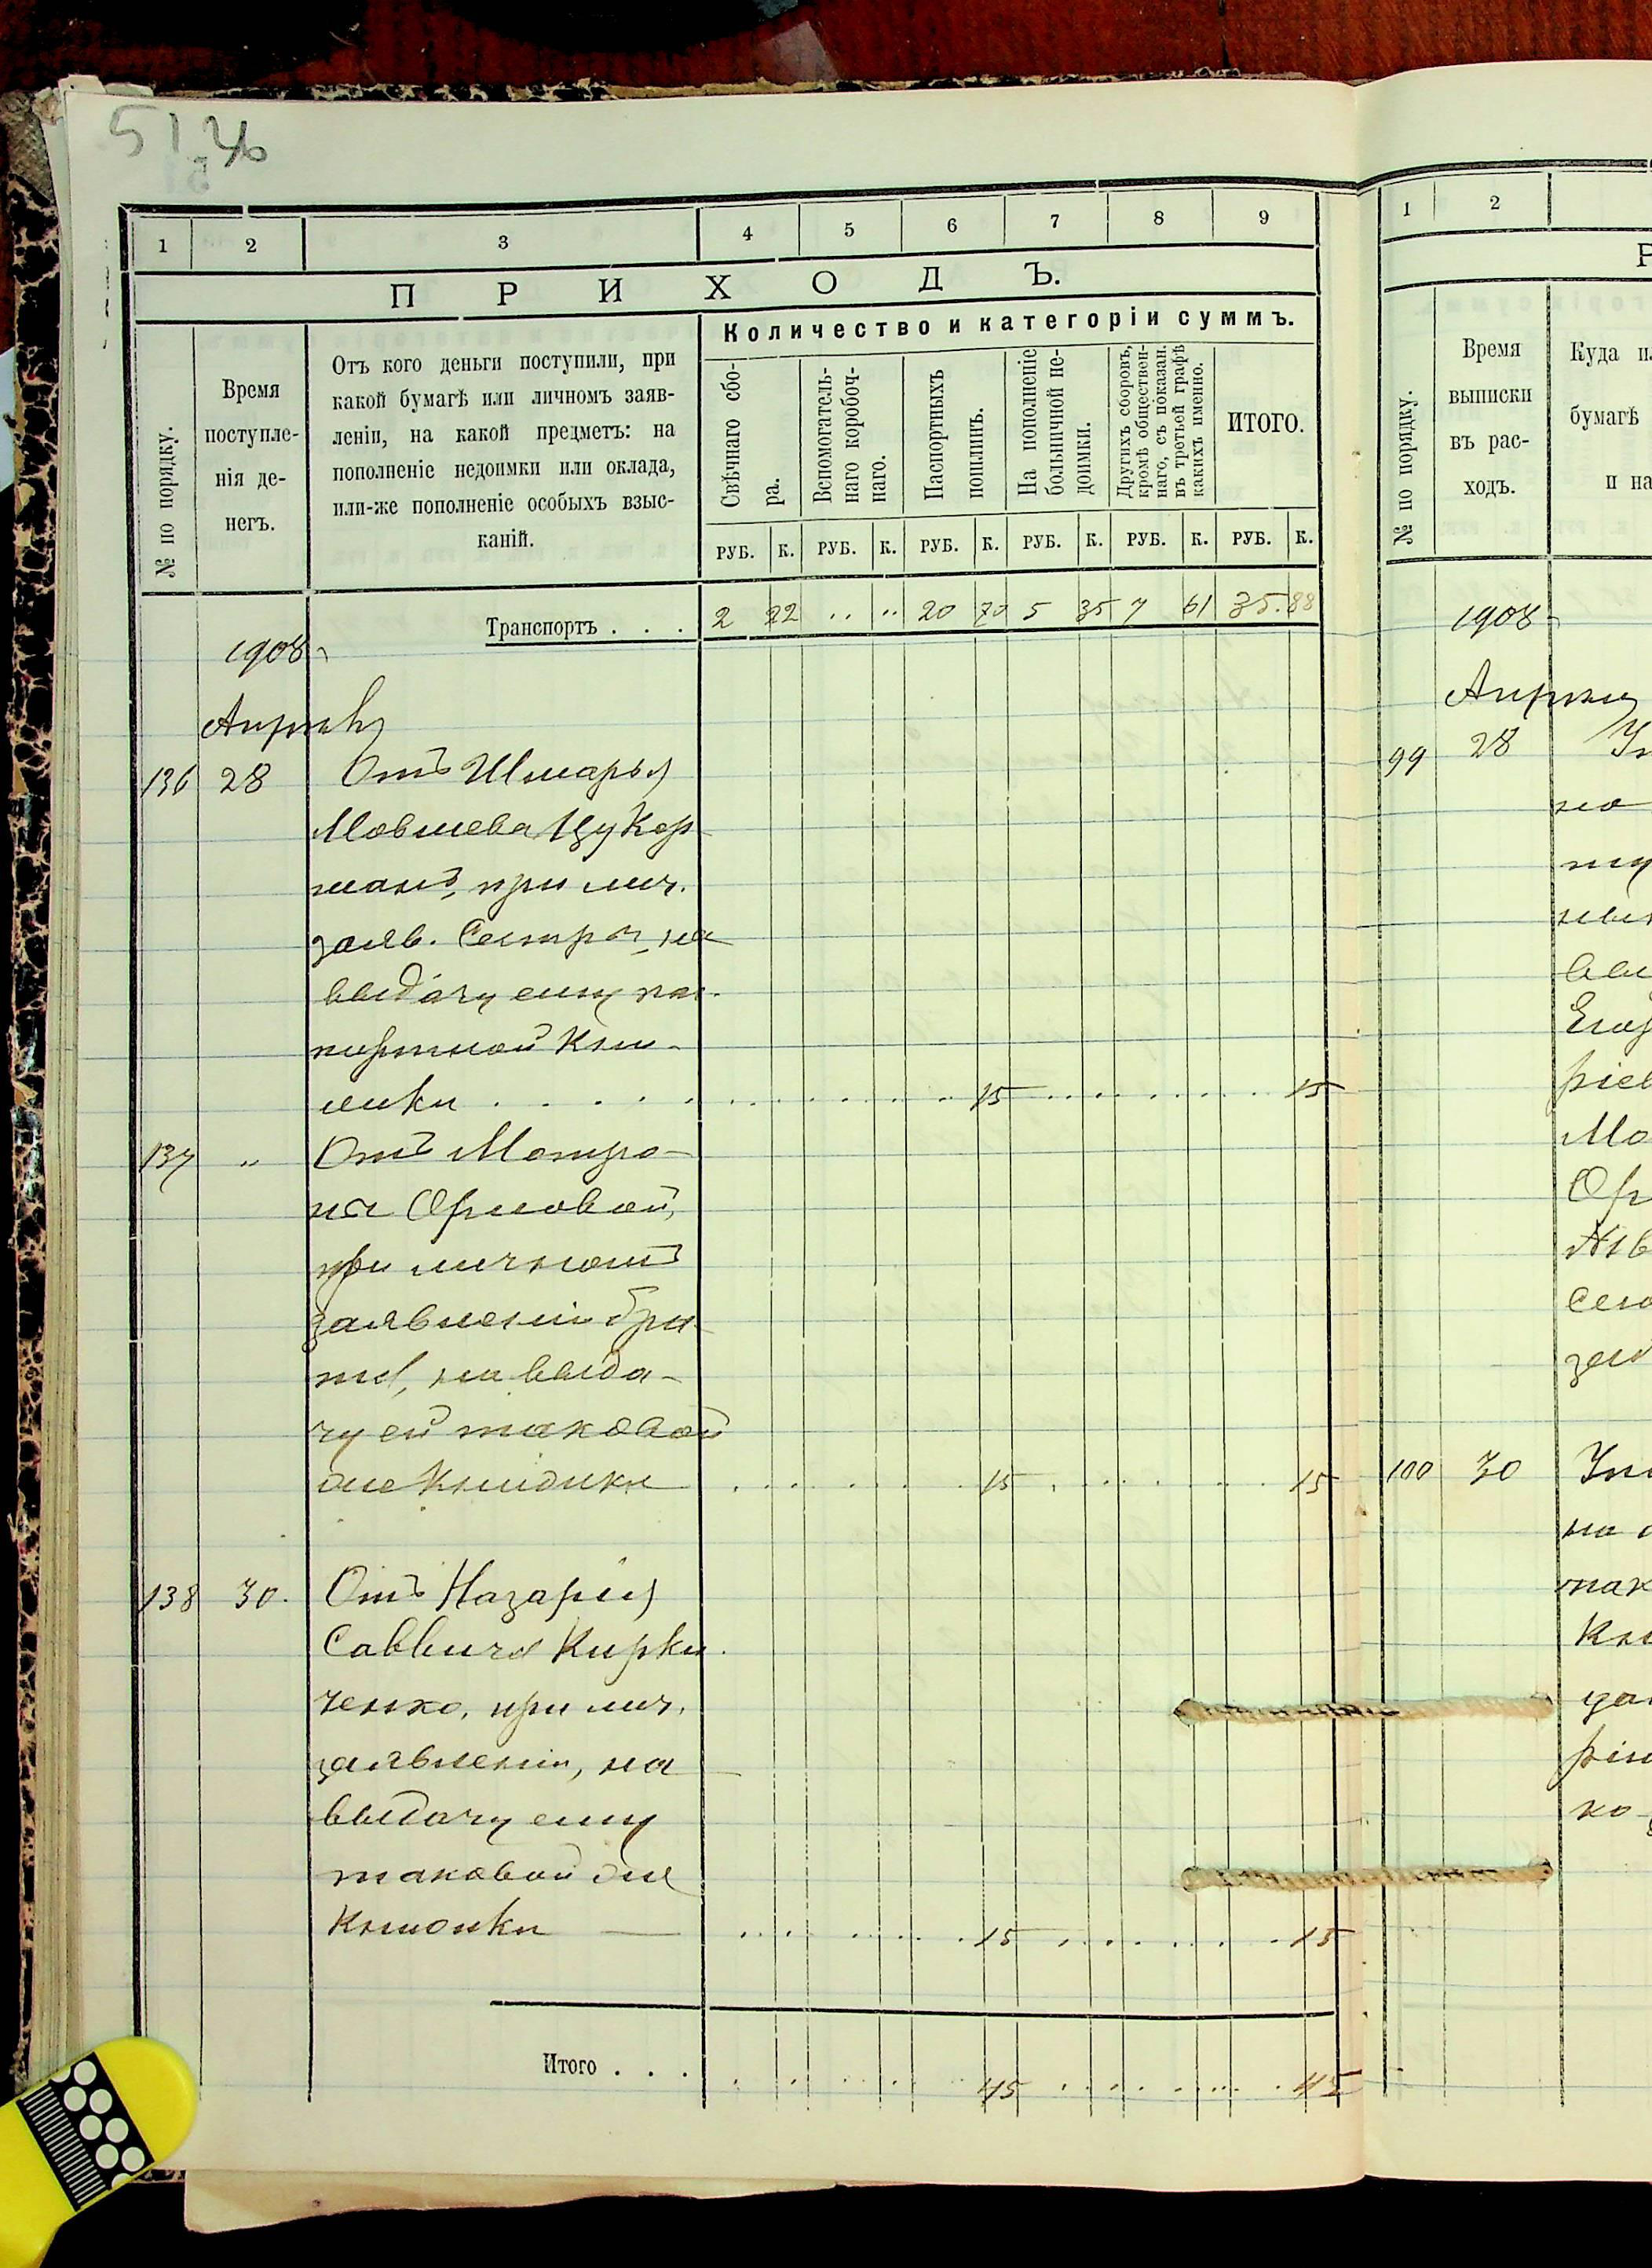 51
1 2 3 4 5 6 7 8 9
ПРИХОДЪ.
№ по порядку.
Время
поступле-
нія де-
негъ.
Отъ кого деньги поступили, при
какой бумагѣ или личномъ заяв-
леніи, на какой предметъ: на
пополненіе недоимки или оклада,
или-же пополненіе особыхъ взыс-
каній.
Количество и категоріи суммъ.
Свѣчнаго сбо-
ра.
Вспомогатель-
наго коробоч-
наго.
Паспортныхъ
пошлинъ.
На пополненіе
больничной не-
доимки.
Другихъ сборовъ,
кромѣ обществен-
наго, съ показан.
въ третьей графѣ
какихъ именно.
ИТОГО.
РУБ. К. РУБ. К. РУБ. К. РУБ. К. РУБ. К. РУБ. К.
Транспортъ . . . 2 22 „ „ 20 70 5 35 7 61 35.88
1908
Апрель
136 28 Отъ Шмарья
Мовшева Цукер-
мана, при лич.
заяв. Сестры, на
выдачу ему пас-
портной кни-
жки . . . . . 15 . . . . . 15
137 „ Отъ Матро-
на Орловой,
при личномъ
заявленіи бра-
та, на выда-
чу ей таковой
же книжки . . . . . 15 . . . . . 15
138 30. Отъ Назарія
Саввича Кирки-
ченко, при лич.
заявленіи, на
выдачу ему
таковой же
книжки — . . . . . 15 . . . . . 15
Итого . . . 45 . . . . . 45
1 2
№ по порядку.
Время
выписки
въ рас-
ходъ.
Куда
бумагѣ
и на
1908
Апрель
99 28
100 30